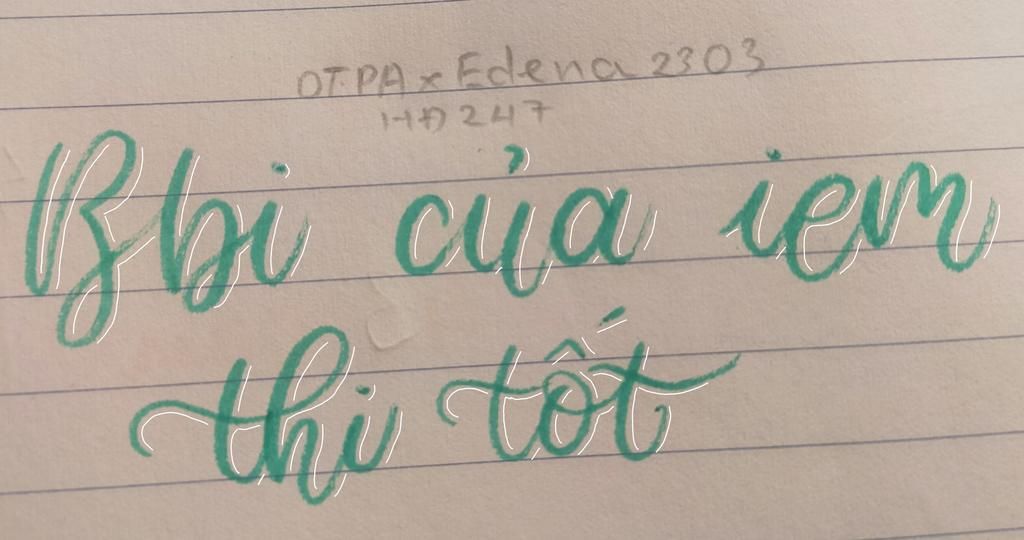 DT.PA x Edena 2303
HĐ 247
Bbi của iem
thi tốt